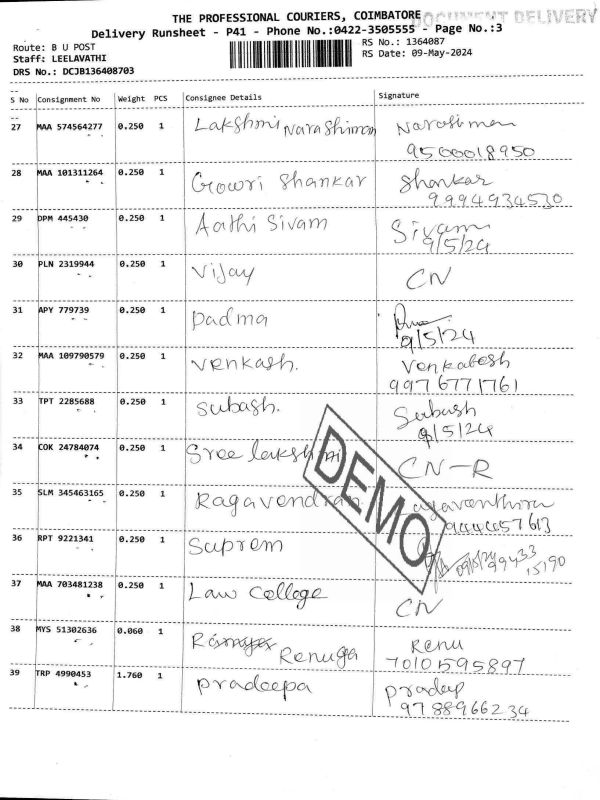 THE PROFESSIONAL COURIERS, COIMBATORE
DOCUMENT DELIVERY
Delivery Runsheet - P41 - Phone No.:0422-3505555 - Page No.:3
Route: B U POST
RS No.: 1364087
Staff: LEELAVATHI
RS Date: 09-May-2024
DRS No.: DCJB136408703
S No Consignment No Weight PCS Consignee Details Signature
27 MAA 574564277 0.250 1 Lakshmi Narashiman Narasiman
9500018950
28 MAA 101311264 0.250 1 Gowri Shankar Shankar
9994934530
29 DPM 445430 0.250 1 Aathi Sivam Sivam
9/5/24
30 PLN 2319944 0.250 1 Vijay CN
31 APY 779739 0.250 1 Padma
9/5/24
32 MAA 109790579 0.250 1 Venkash. Venkatesh
9976771761
33 TPT 2285688 0.250 1 Subash. Subash
9/5/24
34 COK 24784074 0.250 1 Sree lakshmi CN-R
35 SLM 345463165 0.250 1 Ragavendran
36 RPT 9221341 0.250 1 Suprem
99433
15190
37 MAA 703481238 0.250 1 Law College CN
38 MYS 51302636 0.060 1 Renuga Renu
70101595897
39 TRP 4990453 1.760 1 Pradeepa Pradeep
9788966234
DEMO